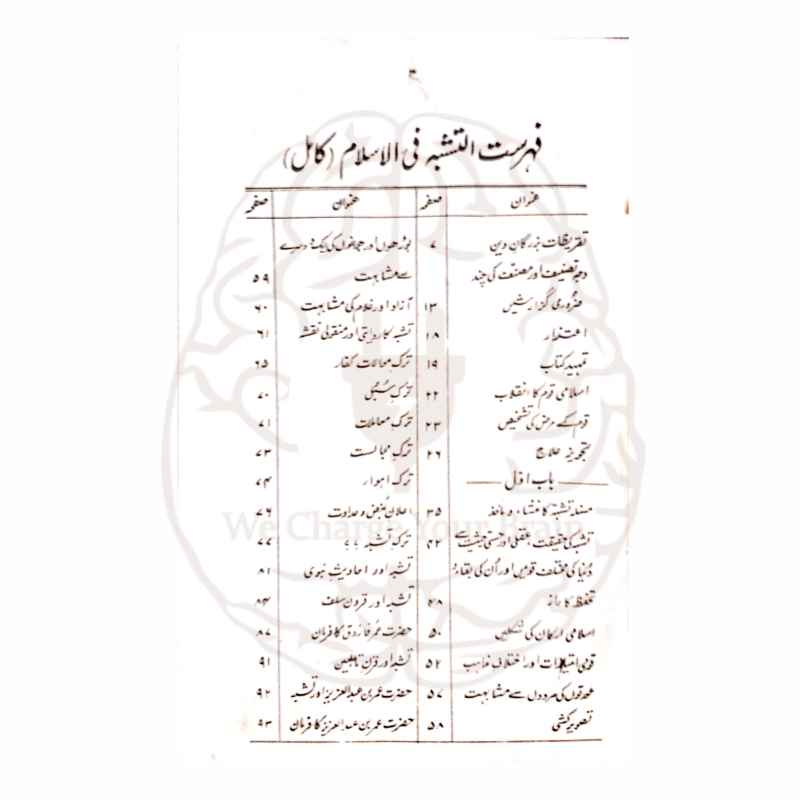 ۳
فہرست التشبہ فی الاسلام (کامل)
عنوان صفحہ
تقریظات بزرگان دین ۷
وجہ تصنیف اور مصنف کی چند
ضروری گزارشیں ۱۳
اعتذار ۱۸
تمہید کتاب ۱۹
اسلامی قوم کا انقلاب ۲۲
قوم کے مرض کی تشخیص ۲۳
تجویز علاج ۲۶
باب اوّل
مسئلہ تشبہ کا منشاء و ماخذ ۳۵
تشبہ کی حقیقت عقلی اور حسی حیثیت سے ۴۲
دنیا کی مختلف قومیں اور اُن کی بقاء و
تحفظ کا راز ۴۸
اسلامی ارکان کی شکلیں ۵۰
قومی امتیازات اور اختلاف مذاہب ۵۲
عورتوں کی مردوں سے مشابہت ۵۷
تصویر کشی ۵۸
عنوان صفحہ
بوڑھوں اور جوانوں کی ایک دوسرے
سے مشابہت ۵۹
آزاد اور غلام کی مشابہت ۶۰
تشبہ کا روایتی اور منقولی نقشہ ۶۱
ترک موالات کفار ۶۵
ترک سُبُل ۷۰
ترک معاملات ۷۱
ترک مجالست ۷۳
ترک اہواء ۷۴
اعلان بُغض و عداوت ۷۶
ترک تشبہ ۷۷
تشبہ اور احادیث نبوی ۸۱
تشبہ اور قرون سلف ۸۴
حضرت عمر فاروق کا فرمان ۸۷
تشبہ اور قرن تابعین ۹۱
حضرت عمر بن عبدالعزیز اور تشبہ ۹۲
حضرت عمر بن عبدالعزیز کا فرمان ۹۳
We Charge Your Brain